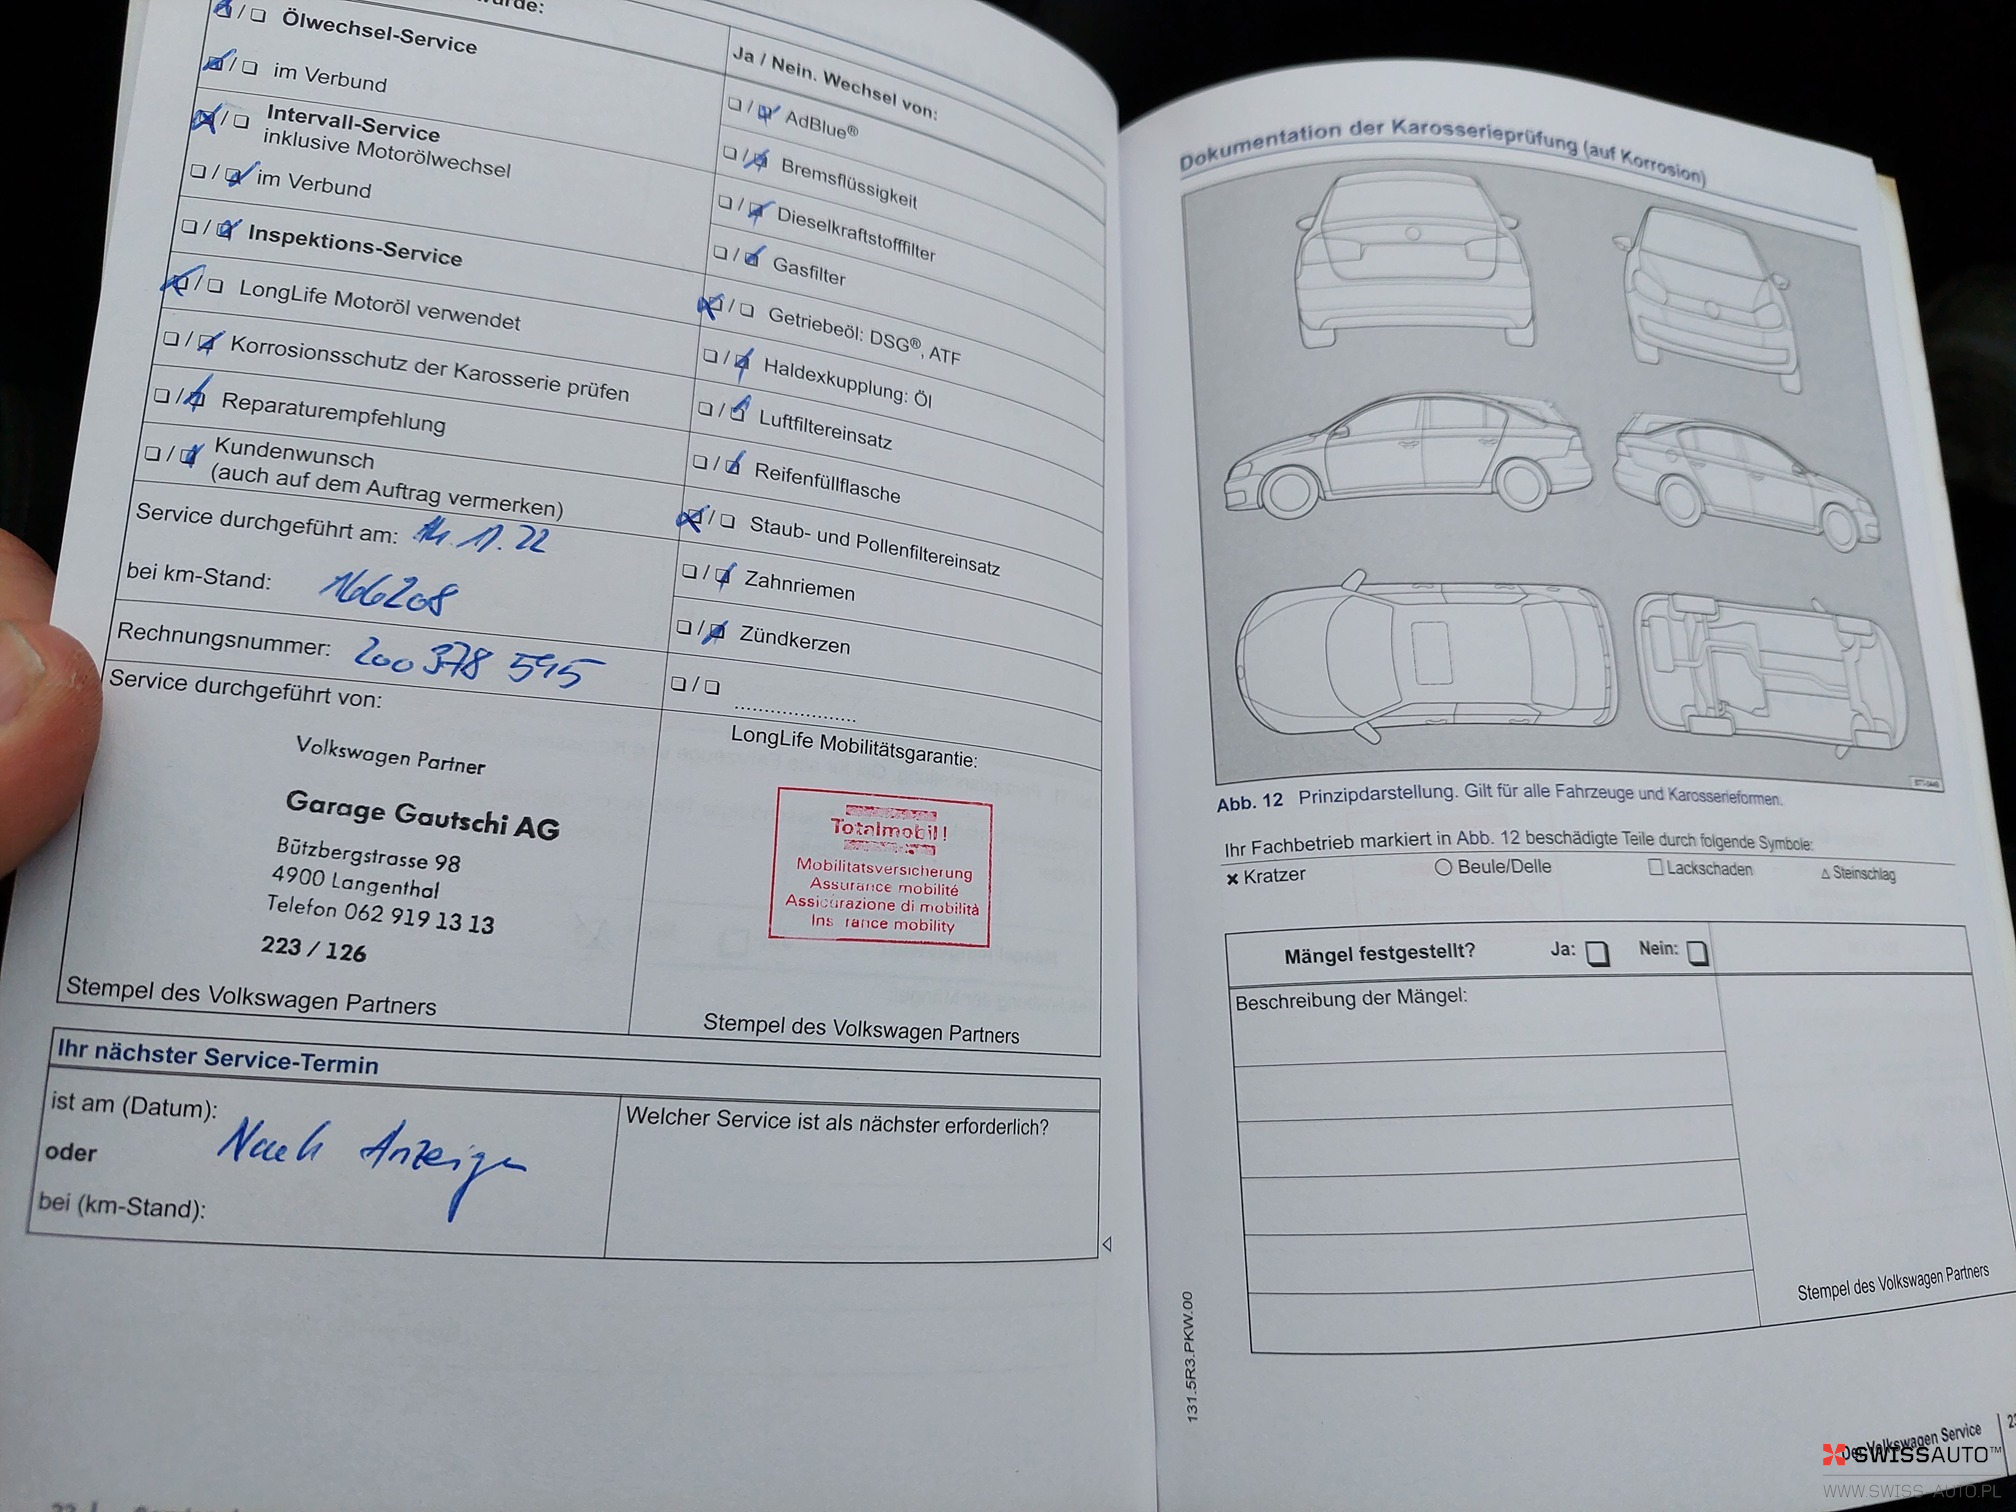 Ölwechsel-Service
im Verbund
Intervall-Service
inklusive Motorölwechsel
im Verbund
Inspektions-Service
LongLife Motoröl verwendet
Korrosionsschutz der Karosserie prüfen
Reparaturempfehlung
Kundenwunsch
(auch auf dem Auftrag vermerken)
Service durchgeführt am: 14.11.22
bei km-Stand: 166208
Rechnungsnummer: 200 378 595
Service durchgeführt von:
Volkswagen Partner
Garage Gautschi AG
Bützbergstrasse 98
4900 Langenthal
Telefon 062 919 13 13
223 / 126
Stempel des Volkswagen Partners
Ja / Nein. Wechsel von:
AdBlue®
Bremsflüssigkeit
Dieselkraftstofffilter
Gasfilter
Getriebeöl: DSG®, ATF
Haldexkupplung: Öl
Luftfiltereinsatz
Reifenfüllflasche
Staub- und Pollenfiltereinsatz
Zahnriemen
Zündkerzen
LongLife Mobilitätsgarantie:
Totalmobil!
Mobilitätsversicherung
Assurance mobilité
Assicurazione di mobilità
Ins rance mobility
Stempel des Volkswagen Partners
Ihr nächster Service-Termin
ist am (Datum):
oder
Nach Anzeige
bei (km-Stand):
Welcher Service ist als nächster erforderlich?
Dokumentation der Karosserieprüfung (auf Korrosion)
Abb. 12 Prinzipdarstellung. Gilt für alle Fahrzeuge und Karosserieformen.
Ihr Fachbetrieb markiert in Abb. 12 beschädigte Teile durch folgende Symbole:
Kratzer
Beule/Delle
Lackschaden
Steinschlag
Mängel festgestellt? Ja: Nein:
Beschreibung der Mängel:
Stempel des Volkswagen Partners
131.5R3.PKW.00
Volkswagen Service
SWISSAUTO™
WWW.SWISS-AUTO.PL